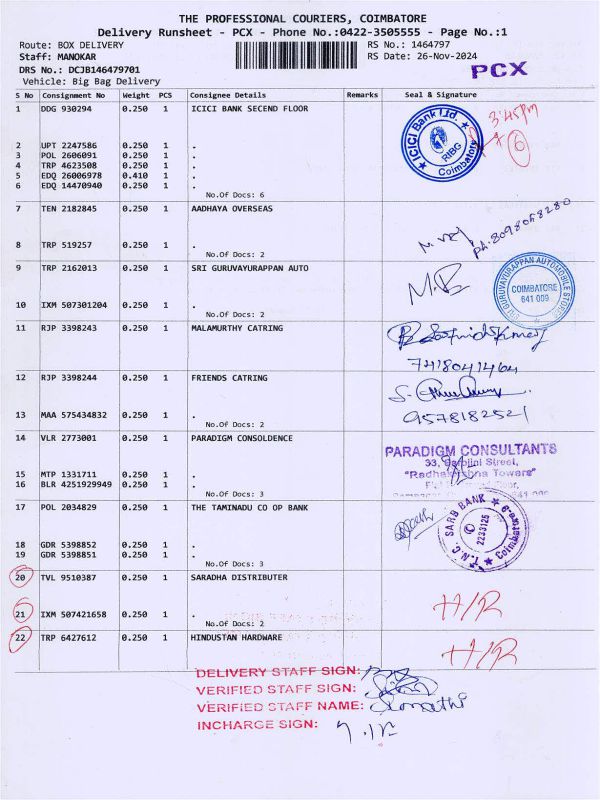 THE PROFESSIONAL COURIERS, COIMBATORE
Delivery Runsheet - PCX - Phone No.:0422-3505555 - Page No.:1
Route: BOX DELIVERY RS No.: 1464797
Staff: MANOKAR RS Date: 26-Nov-2024
DRS No.: DCJB146479701 PCX
Vehicle: Big Bag Delivery
S No Consignment No Weight PCS Consignee Details Remarks Seal & Signature
1 DDG 930294 0.250 1 ICICI BANK SECEND FLOOR
ICICI Bank Ltd. RIBG Coimbatore
3:45pm
6
2 UPT 2247586 0.250 1 .
3 POL 2606091 0.250 1 .
4 TRP 4623508 0.250 1 .
5 EDQ 26006978 0.410 1 .
6 EDQ 14470940 0.250 1 .
No.Of Docs: 6
7 TEN 2182845 0.250 1 AADHAYA OVERSEAS
Ph: 8098068280
8 TRP 519257 0.250 1 .
No.Of Docs: 2
9 TRP 2162013 0.250 1 SRI GURUVAYURAPPAN AUTO
SRI GURUVAYURAPPAN AUTOMOBILE STORES
COIMBATORE
641 009
10 IXM 507301204 0.250 1 .
No.Of Docs: 2
11 RJP 3398243 0.250 1 MALAMURTHY CATRING
7418041464
12 RJP 3398244 0.250 1 FRIENDS CATRING
13 MAA 575434832 0.250 1 .
9578182521
No.Of Docs: 2
14 VLR 2773001 0.250 1 PARADIGM CONSOLDENCE
PARADIGM CONSULTANTS
33, Sarojini Street,
"Radhakrishna Towers"
15 MTP 1331711 0.250 1 .
16 BLR 4251929949 0.250 1 .
No.Of Docs: 3
17 POL 2034829 0.250 1 THE TAMINADU CO OP BANK
T.N.C. SARB BANK Coimbatore-9
2233125
18 GDR 5398852 0.250 1 .
19 GDR 5398851 0.250 1 .
No.Of Docs: 3
20 TVL 9510387 0.250 1 SARADHA DISTRIBUTER
21 IXM 507421658 0.250 1 .
H/R
No.Of Docs: 2
22 TRP 6427612 0.250 1 HINDUSTAN HARDWARE
H/R
DELIVERY STAFF SIGN:
VERIFIED STAFF SIGN:
VERIFIED STAFF NAME:
INCHARGE SIGN: